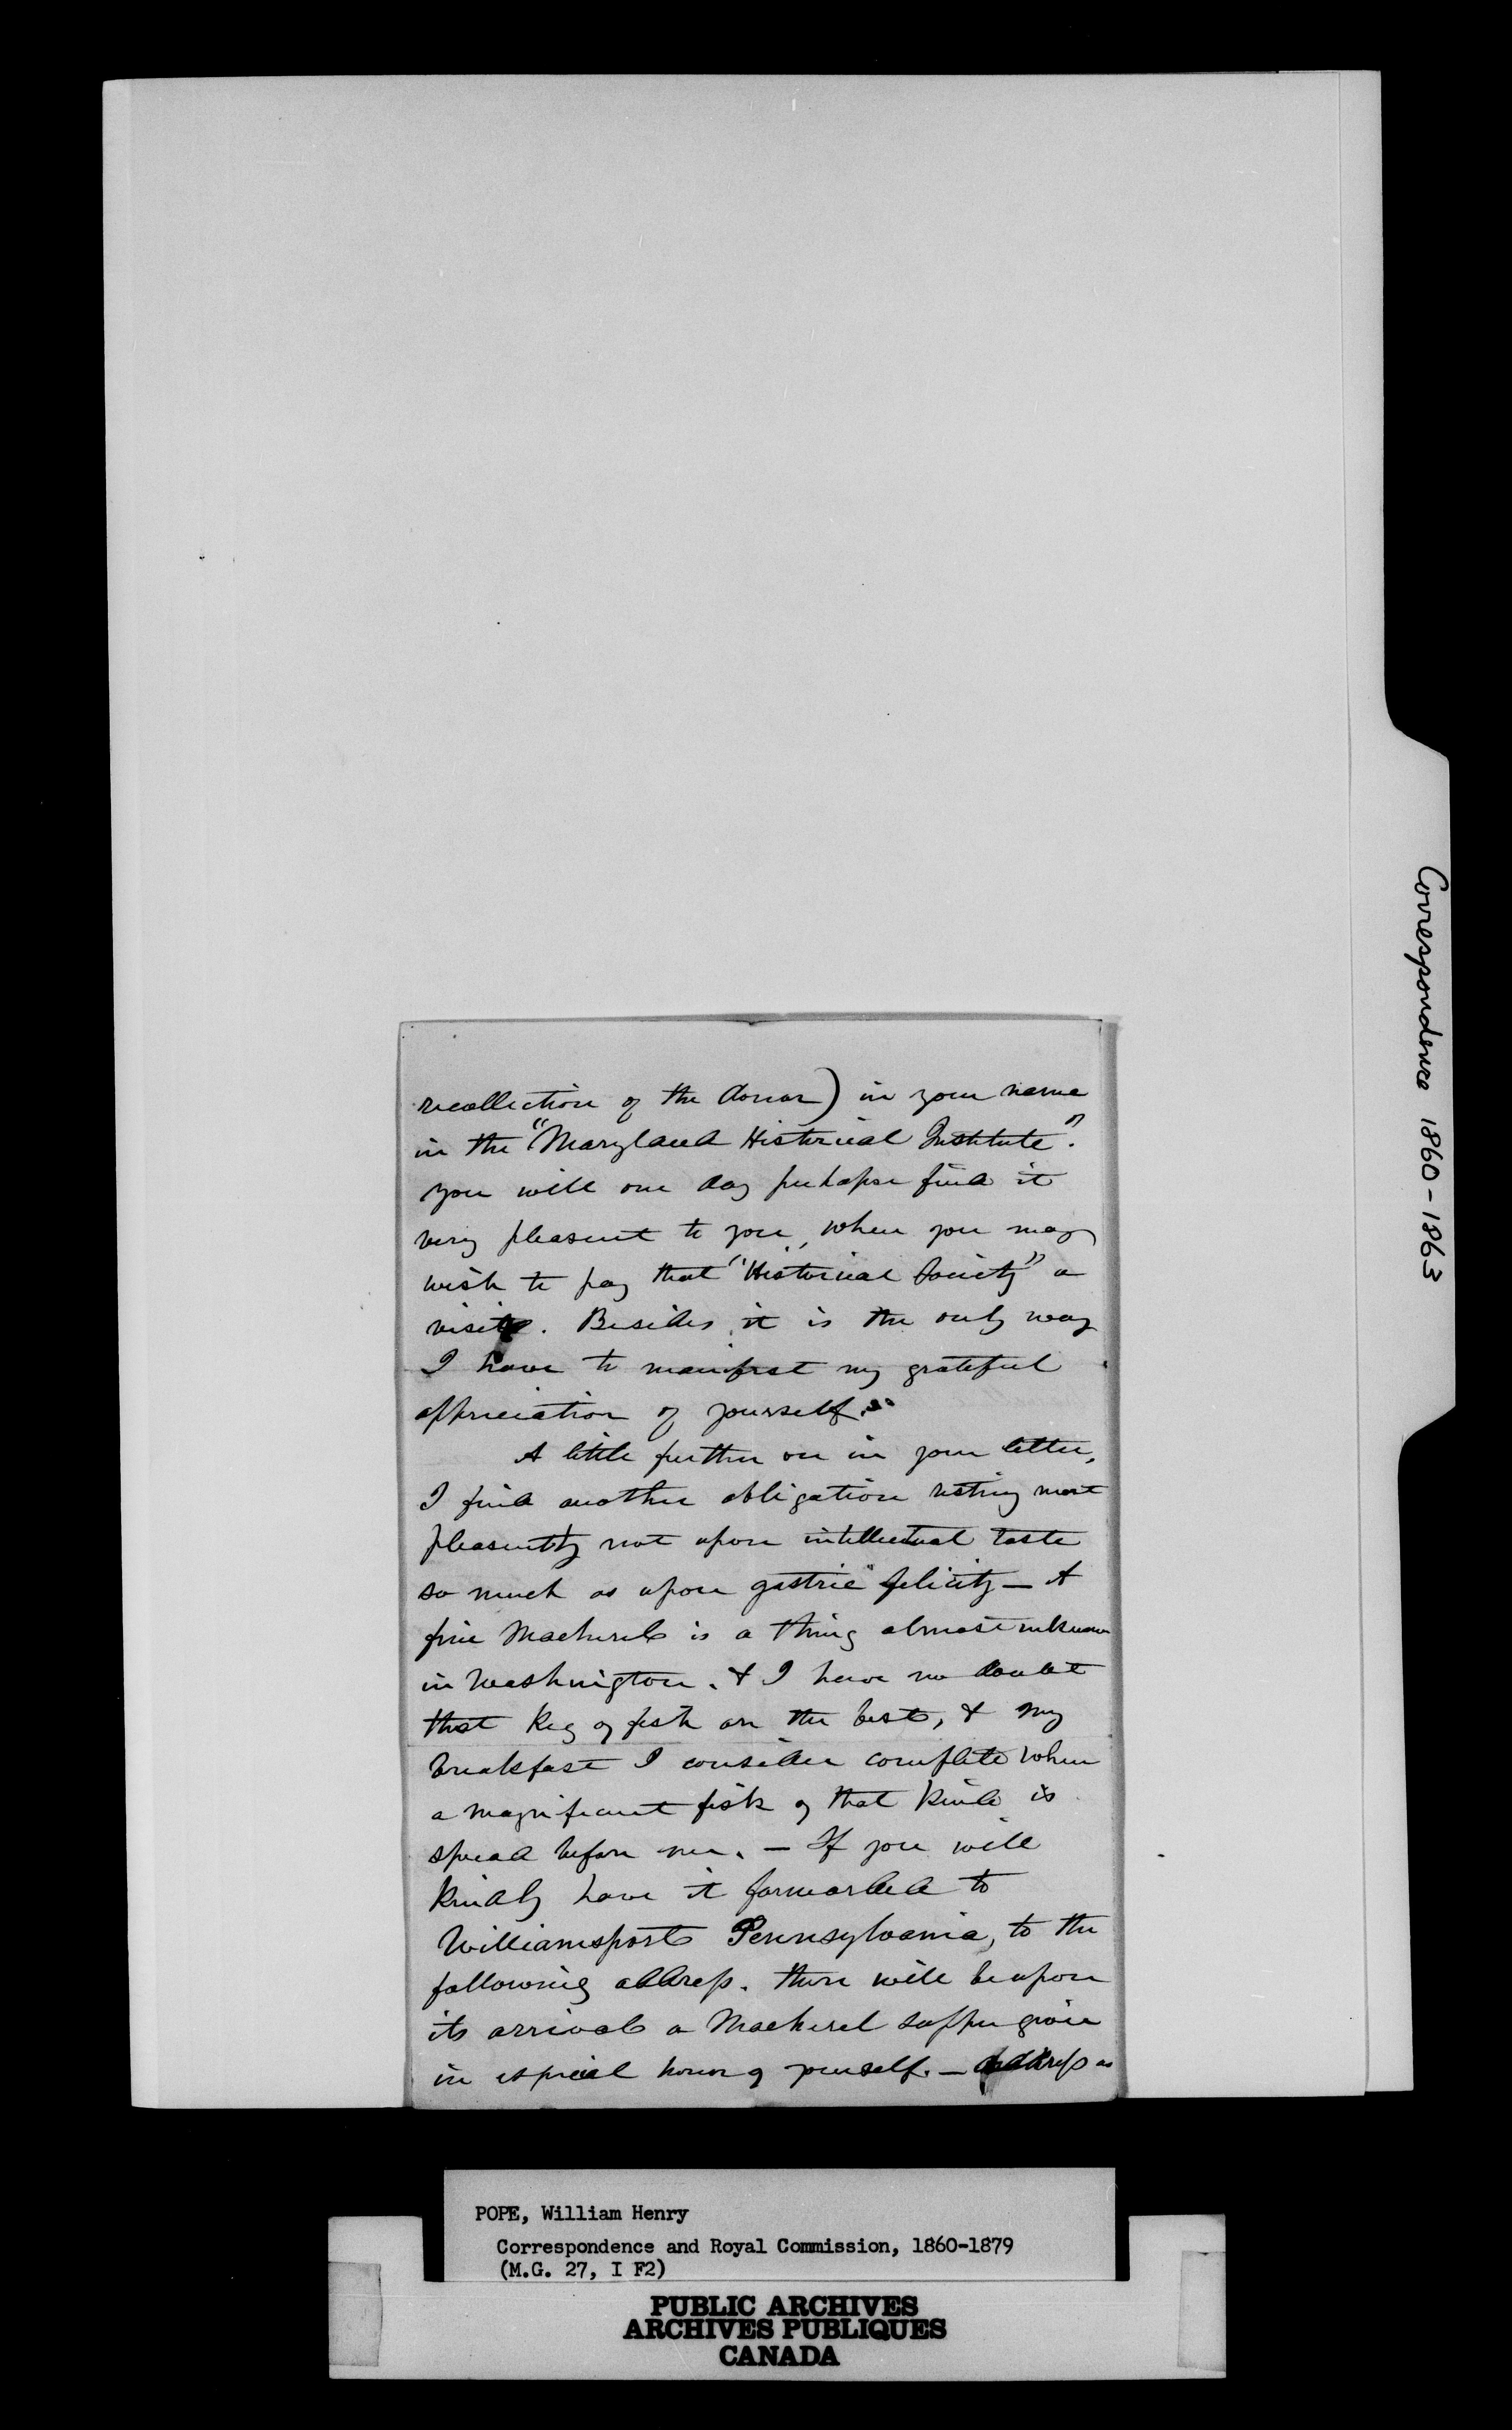 recollection of the donor) in your name
in the "Maryland Historical Institute".
you will one day perhapse find it
very pleasent to you, when you may
wish to pay that "Historical Society" a
visit. Besides it is the only way
I have to manifest my grateful
appreciation of yourself.
A little further on in your letter,
I find another obligation resting most
pleasently not upon intellectual taste
so much as upon gastric felicity — A
fine Mackerel is a thing almost unknown
in Washington. & I have no doubt
that keg of fish are the best, & my
breakfast I consider complete when
a magnificent fish of that kind is
spread before me. — If you will
kindly have it forwarded to
Williamsport Pennsylvania, to the
following address. there will be upon
its arrival a Mackerel supper given
in especial honor of yourself. — address as
Correspondence 1860-1863
POPE, William Henry
Correspondence and Royal Commission, 1860-1879
(M.G. 27, I F2)
PUBLIC ARCHIVES
ARCHIVES PUBLIQUES
CANADA